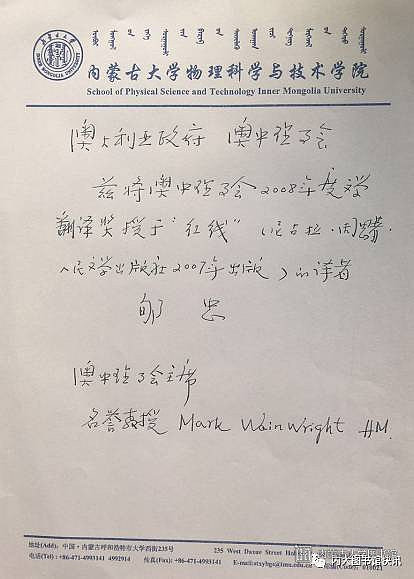 内蒙古大学物理科学与技术学院
School of Physical Science and Technology Inner Mongolia University
澳大利亚政府 澳中理事会
兹将澳中理事会2008年度文学
翻译奖授于“红线”(尼古拉·周思著·
人民文学出版社2007年出版)的译者
郇忠
澳中理事会主席
名誉教授 Mark WainWright AM.
地址(Add): 中国·内蒙古呼和浩特市大学西街235号
235 West Daxue Street
电话(Tel): +86-471-4993141 4992914 传真(Fax): +86-471-4993141
010021
内大图书馆快讯